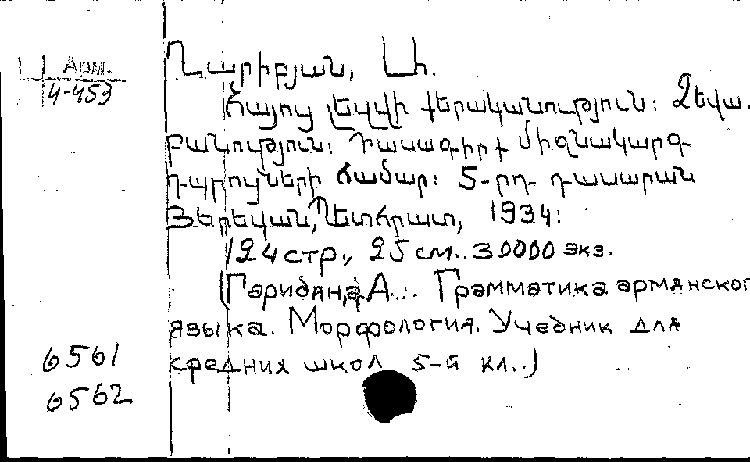 Арм.
4-453
Ղարիբյան, Ա.
Հայոց լեզվի քերականություն: Ձևա-
բանություն: Դասագիրք միջնակարգ
դպրոցների համար: 5-րդ դասարան
Յերեվան, Պետհրատ, 1934:
124 стр., 25 см.. 30000 экз.
(Гарибян, А... Грамматика армянского
языка. Морфология. Учебник для
средних школ 5-й кл..)
6561
6562